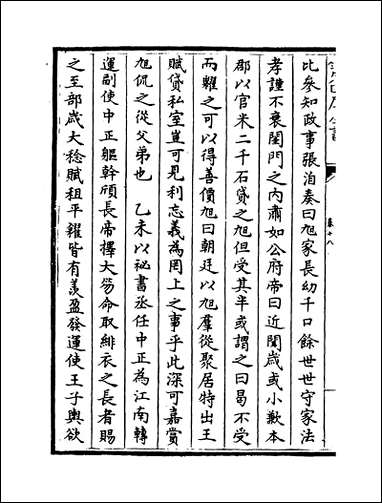 比參知政事張洎奏曰旭家長幼千口餘世世守家法
孝謹不衰閨門之内肅如公府帝曰近聞歳或小歉本
郡以官米二千石貸之旭但受其半或謂之曰曷不受
而糶之可以得善價旭曰朝廷以旭羣從聚居特出王
賦貸私室豈可見利忘義為罔上之事乎此深可嘉賞
旭侃之從父弟也　乙未以祕書丞任中正為江南轉
運副使中正軀幹頎長帝擇大笏命取緋衣之長者賜
之至部歳大稔賦租平糴皆有羡盈發運使王子輿欲
卷十八